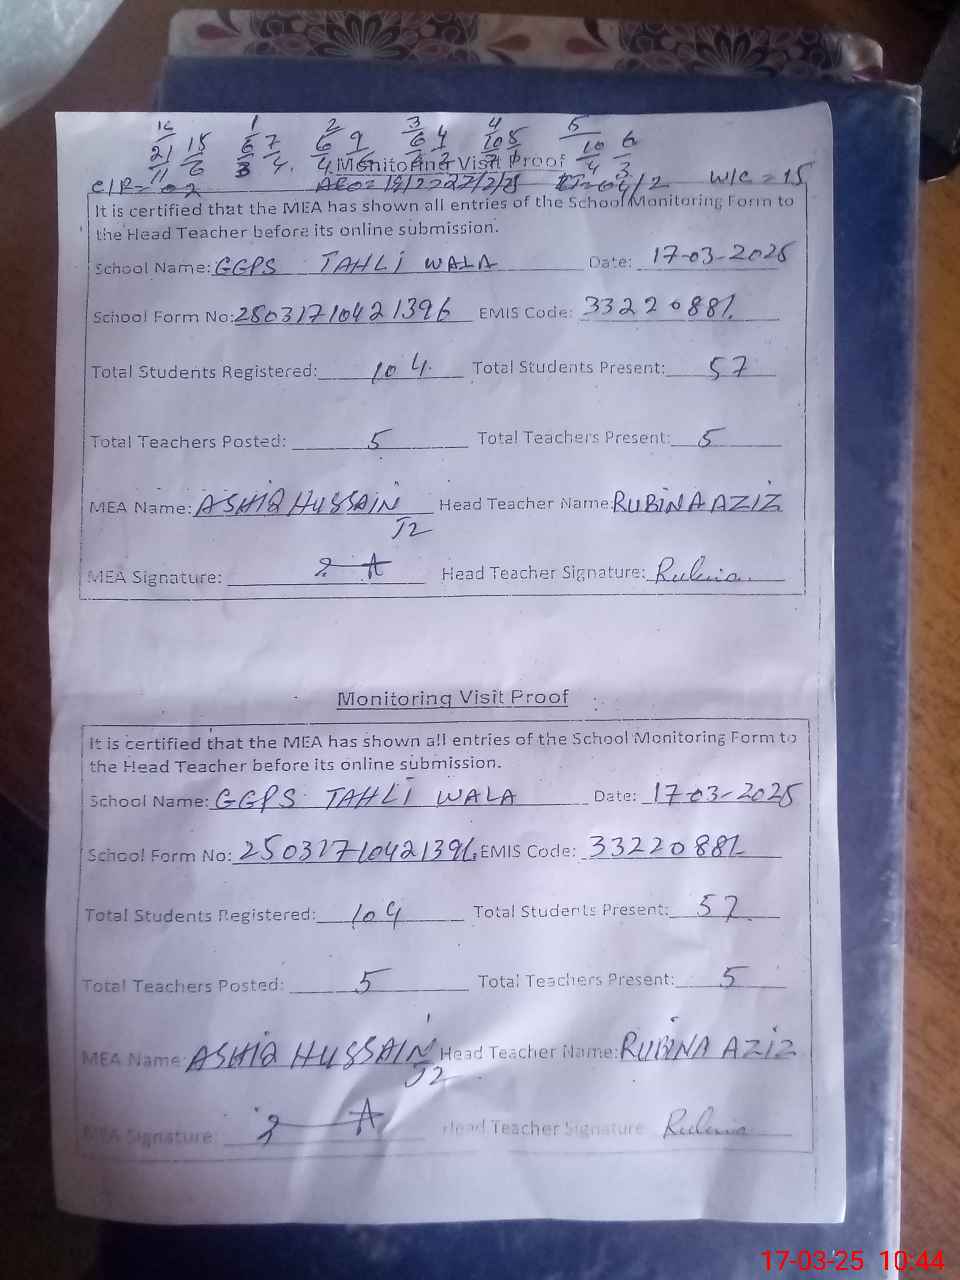 16 1 2 3 4 5
21 15 6 7 6 9 6 4 10 5 10 6
11 6 3 4. 4 4 3
Monitoring Visit Proof
C/R= 02 W/C = 15
It is certified that the MEA has shown all entries of the School Monitoring Form to
the Head Teacher before its online submission.
School Name: GGPS TAHLI WALA Date: 17-03-2025
School Form No: 25031710421396 EMIS Code: 33220881
Total Students Registered: 104 Total Students Present: 57
Total Teachers Posted: 5 Total Teachers Present: 5
MEA Name: ASHIQ HUSSAIN Head Teacher Name: RUBINA AZIZ
J2
MEA Signature: Head Teacher Signature: Rubina
Monitoring Visit Proof
It is certified that the MEA has shown all entries of the School Monitoring Form to
the Head Teacher before its online submission.
School Name: GGPS TAHLI WALA Date: 17-03-2025
School Form No: 25031710421396 EMIS Code: 33220881
Total Students Registered: 104 Total Students Present: 57
Total Teachers Posted: 5 Total Teachers Present: 5
MEA Name: ASHIQ HUSSAIN Head Teacher Name: RUBINA AZIZ
J2
MEA Signature: Head Teacher Signature Rubina
17-03-25 10:44